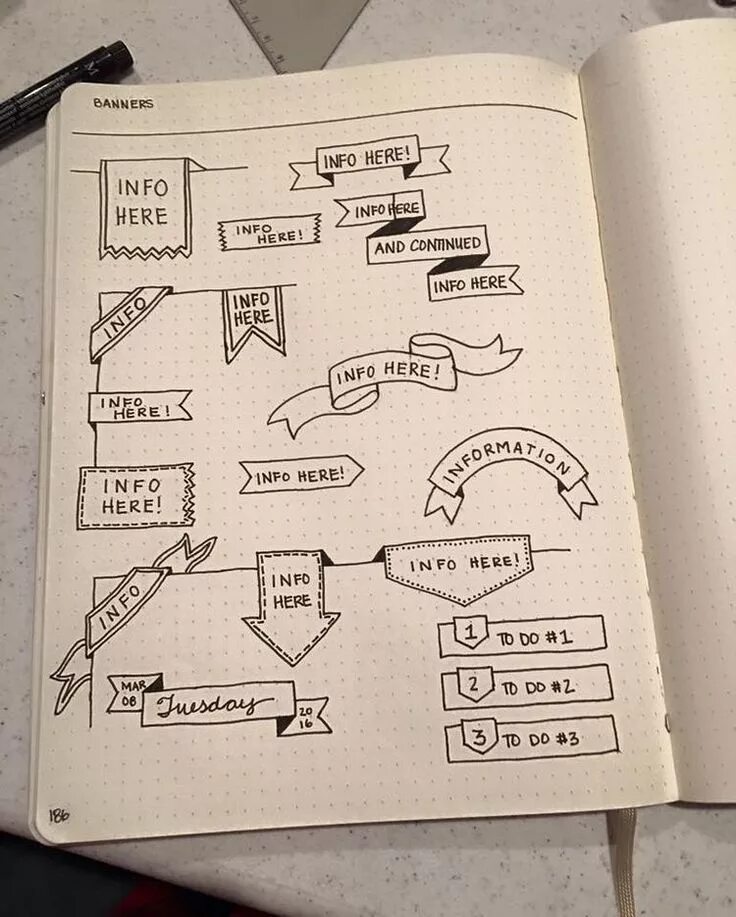 BANNERS
INFO
HERE
INFO HERE!
INFO
HERE!
INFO HERE
AND CONTINUED
INFO HERE
INFO
INFO
HERE
INFO HERE!
INFO
HERE!
INFO
HERE!
INFO HERE!
INFORMATION
INFO
INFO
HERE
INFO HERE!
1 TO DO #1
2 TO DO #2
3 TO DO #3
MAR
08
Tuesday
20
16
186